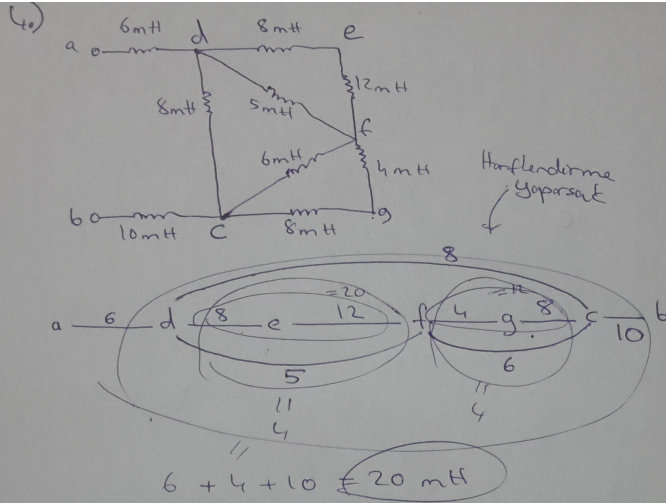 4.)
6mH d 8mH e
a
8mH 5mH 12mH
f
6mH 4mH
b
10mH c 8mH g
Harflendirme
yaparsak
8
=20 =12
a 6 d 8 e 12 f 4 g 8 c b
10
5 6
=
4
=
4
=
6 + 4 + 10 = 20 mH